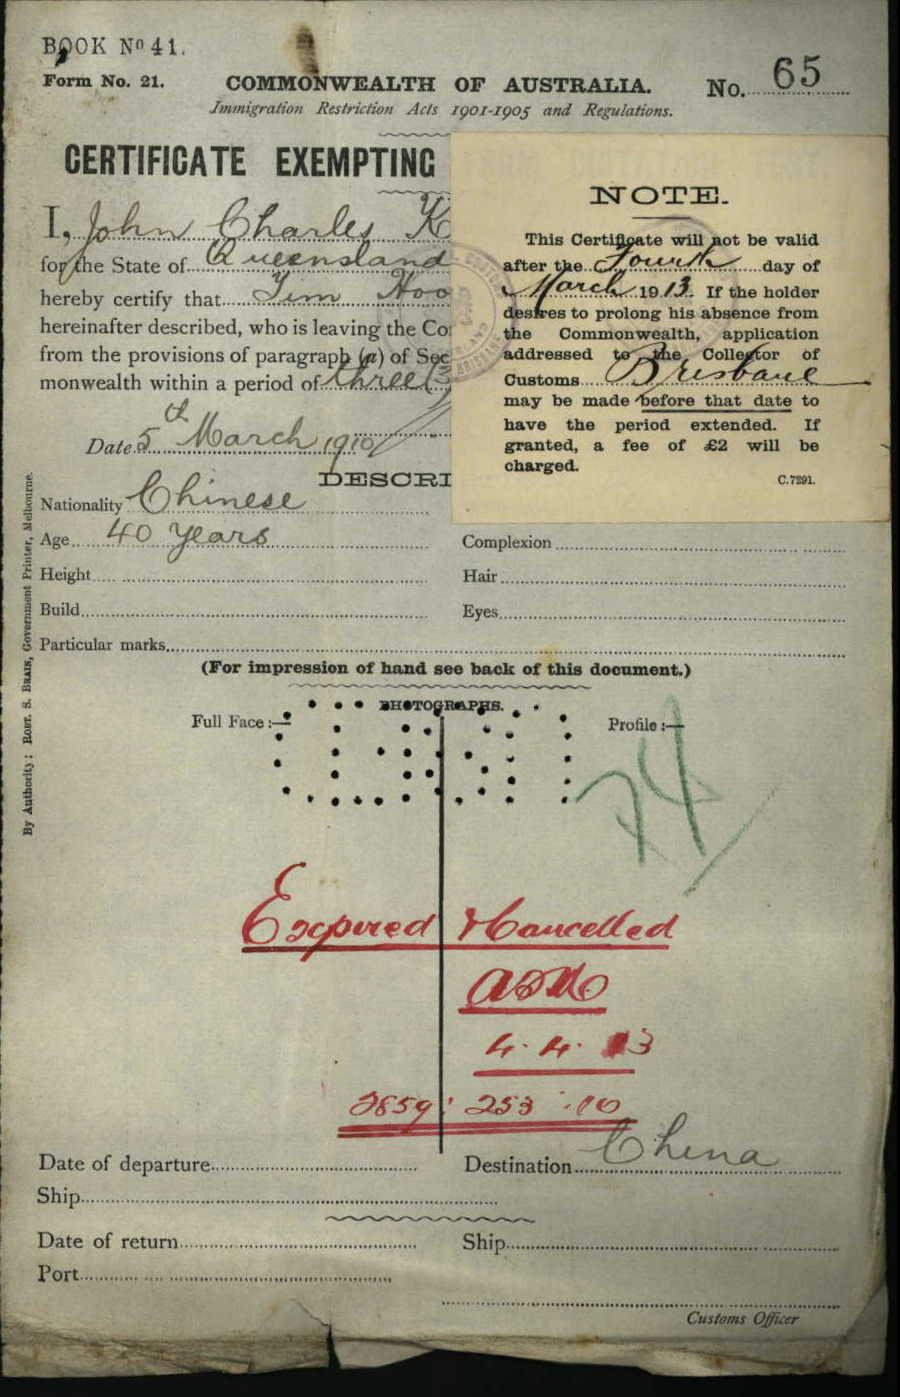 BOOK Nº 41.
Form No. 21.
COMMONWEALTH OF AUSTRALIA.
No. 65
Immigration Restriction Acts 1901-1905 and Regulations.
CERTIFICATE EXEMPTING
I, John Charles K
for the State of Queensland
hereby certify that Tim Hoo
hereinafter described, who is leaving the Co
from the provisions of paragraph (a) of Sec
monwealth within a period of three (3
Date 5th March 1910
DESCRI
NOTE.
This Certificate will not be valid
after the Fourth day of
March 1913. If the holder
desires to prolong his absence from
the Commonwealth, application
addressed to the Collector of
Customs Brisbane
may be made before that date to
have the period extended. If
granted, a fee of £2 will be
charged.
C.7291.
Nationality Chinese
Age 40 years
Complexion
Height
Hair
Build
Eyes
Particular marks
(For impression of hand see back of this document.)
PHOTOGRAPHS.
Full Face :—
Profile :—
74
Expired & Cancelled
4.4.13
2859: 253 :10
Date of departure
Destination China
Ship
Date of return
Ship
Port
Customs Officer
By Authority: ROBT. S. BRAIN, Government Printer, Melbourne.